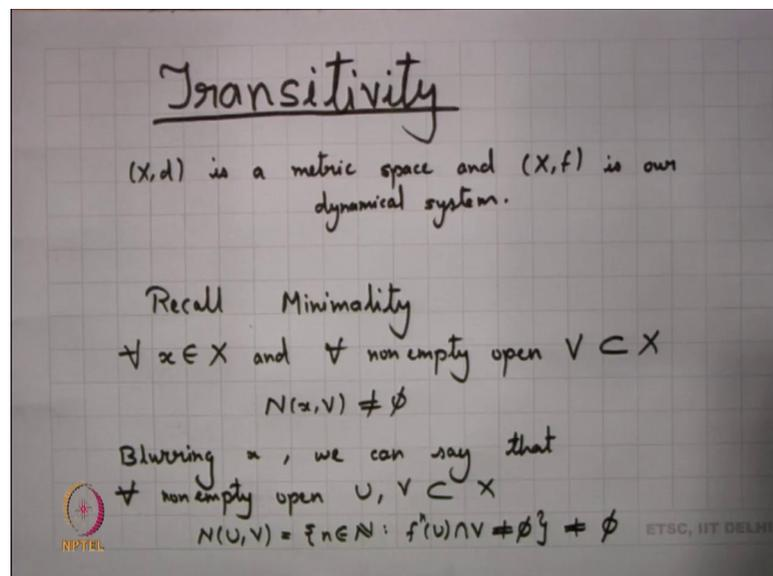 Transitivity
(X,d) is a metric space and (X,f) is our
dynamical system.
Recall Minimality
∀ x ∈ X and ∀ non empty open V ⊂ X
N(x,V) ≠ ∅
Blurring x, we can say that
∀ non empty open U, V ⊂ X
N(U,V) = {n ∈ ℕ : fⁿ(U) ∩ V ≠ ∅} ≠ ∅
NPTEL
ETSC, IIT DELHI